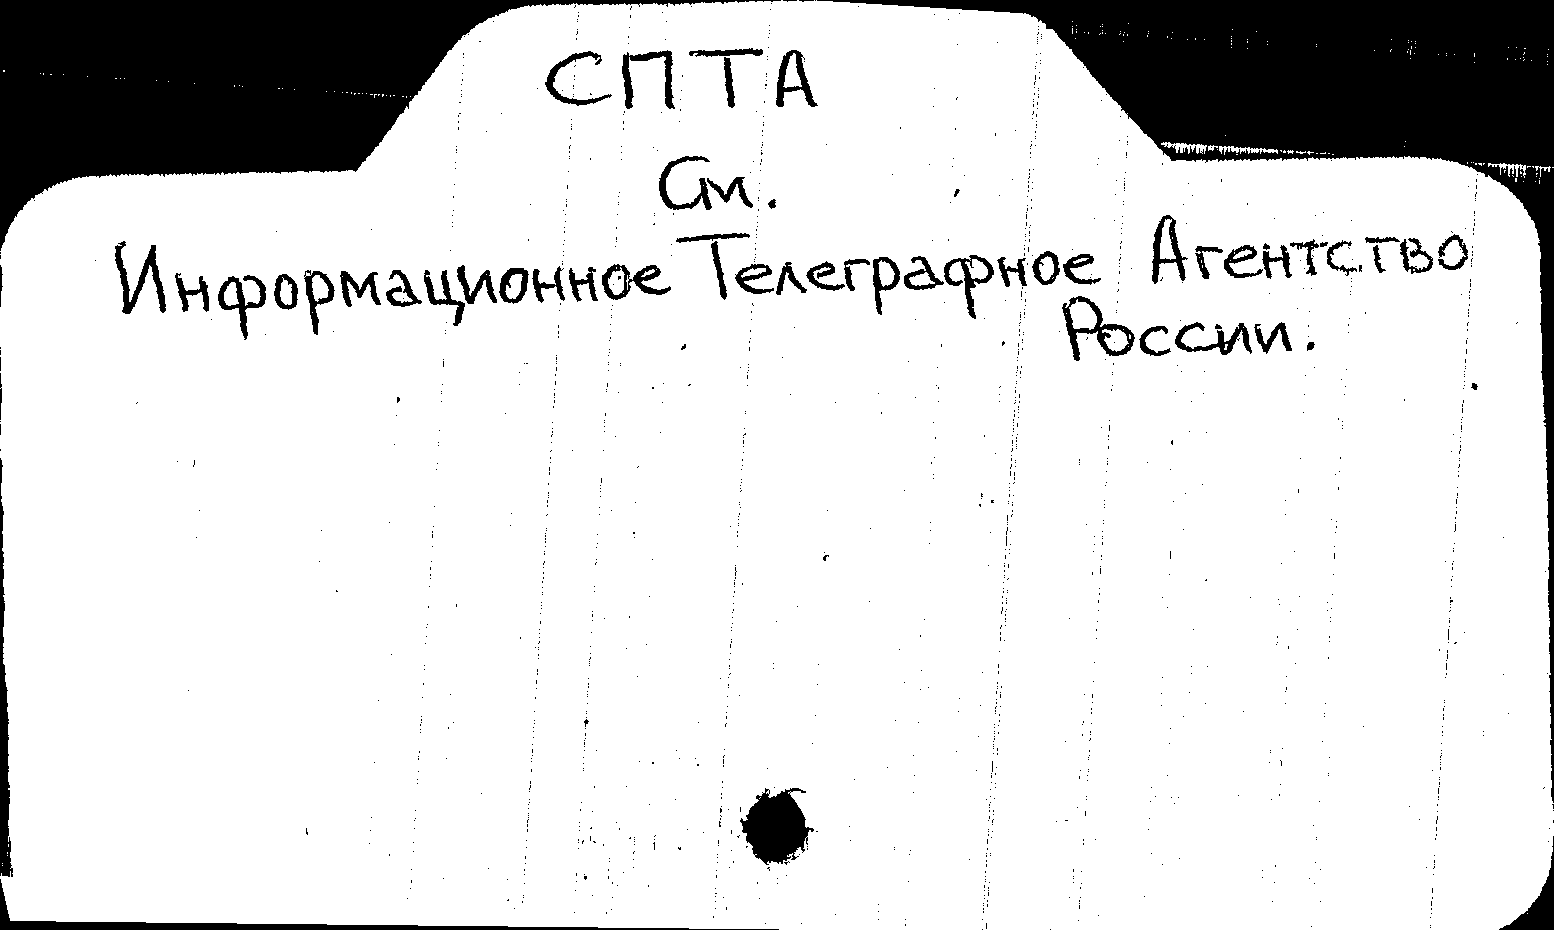 СПТА
См.
Информационное Телеграфное Агентство
России.